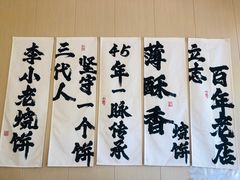 李小老烧饼
三代人
坚守一个饼
45年一脉传承
薄酥香
烧饼
立志
百年老店